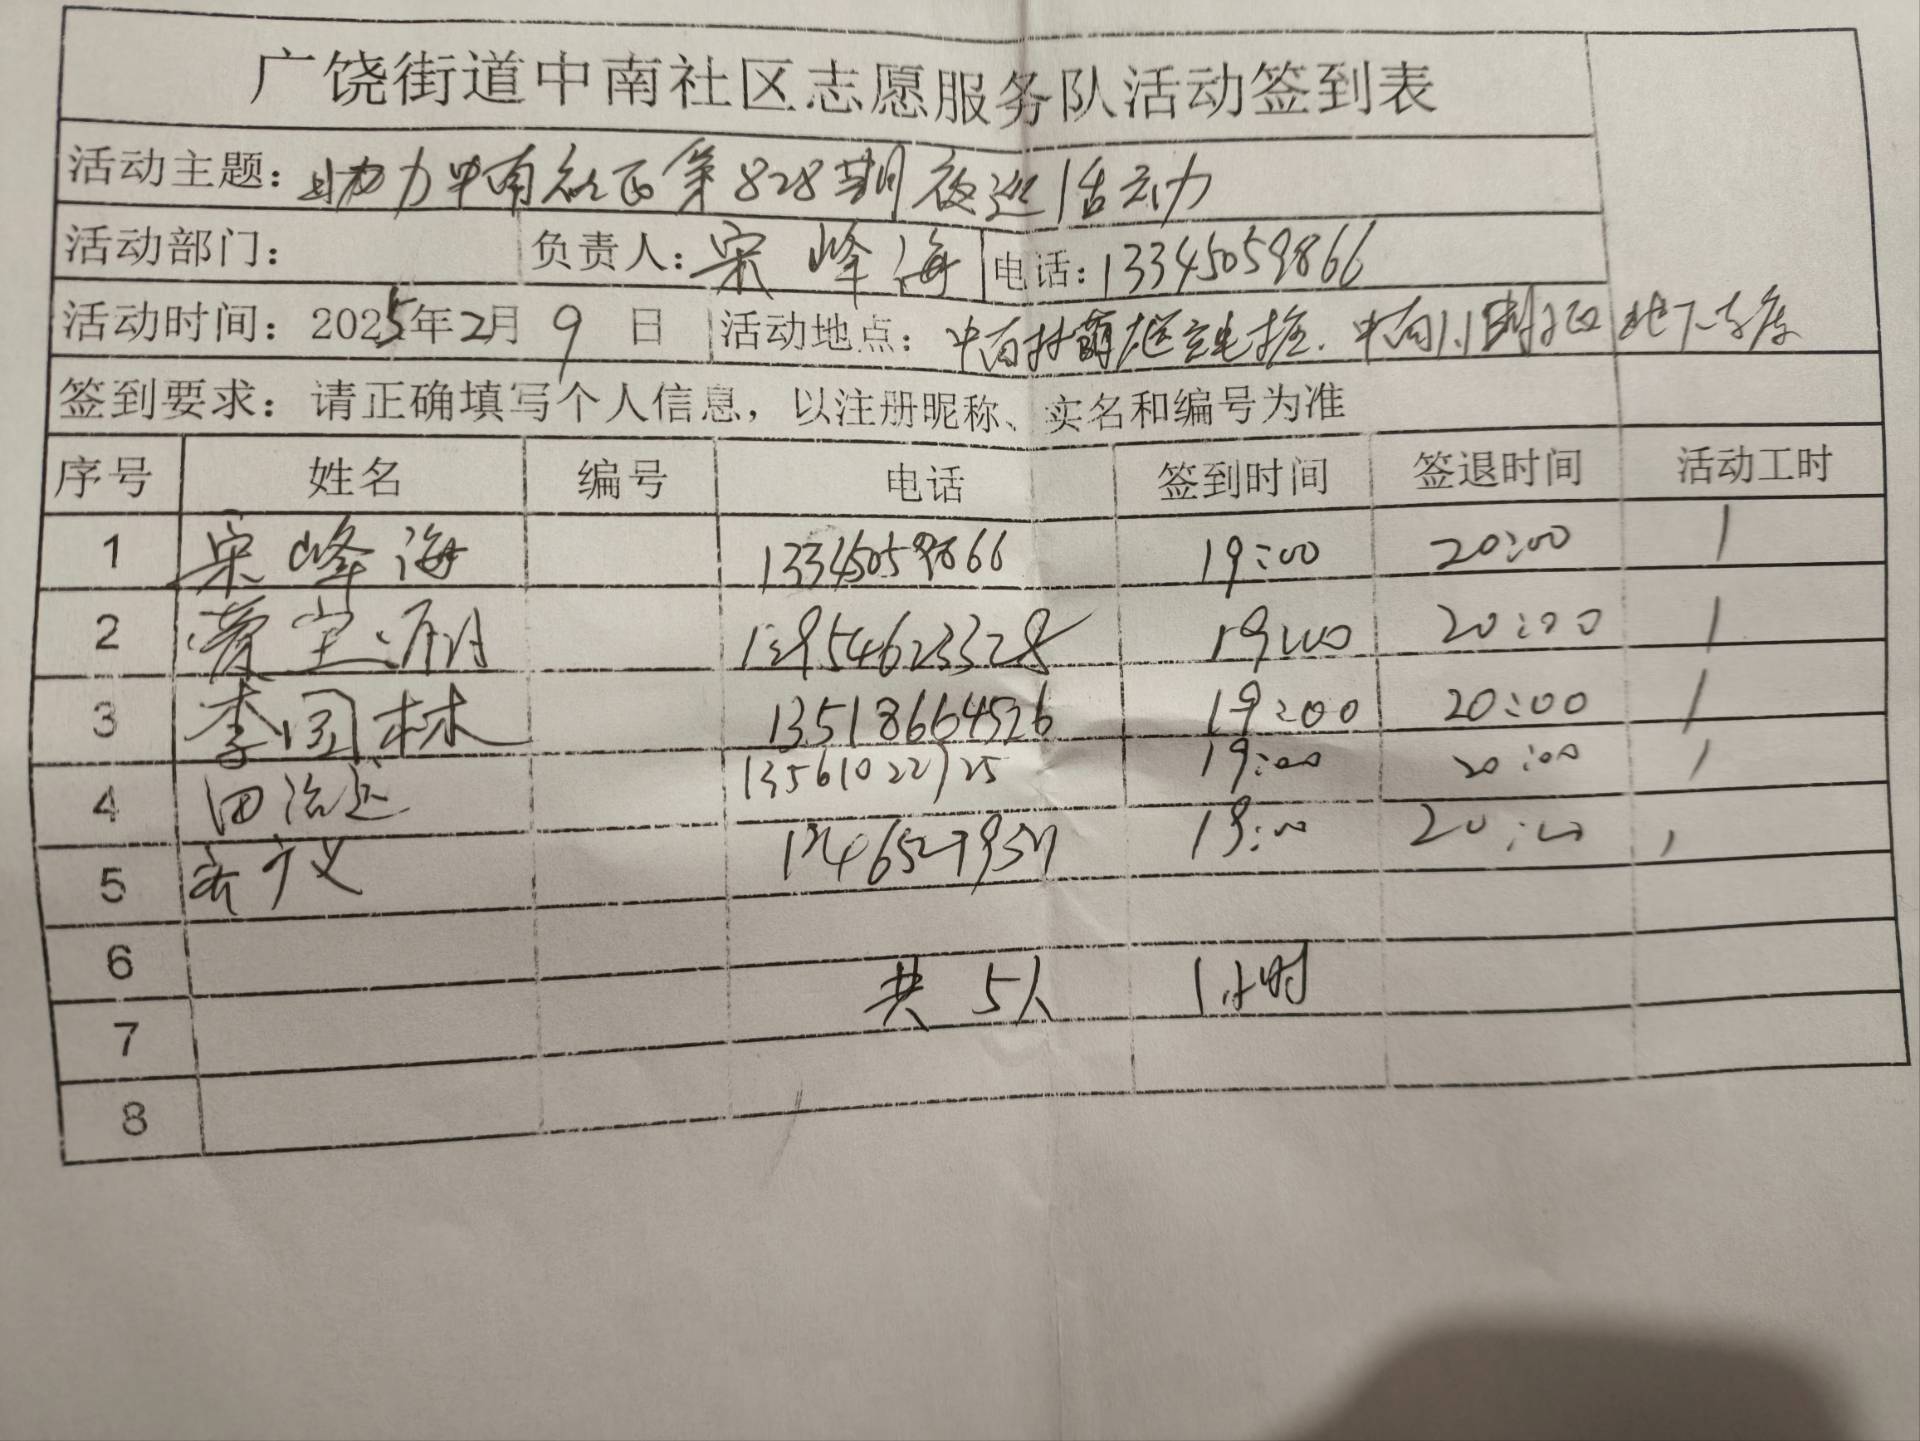 广饶街道中南社区志愿服务队活动签到表
活动主题：助力中南社区第828期夜巡活动
活动部门： 负责人：宋峰海 电话：13345059866
活动时间：2025年2月9日 活动地点：中南 中南 地下车库
签到要求：请正确填写个人信息，以注册昵称、实名和编号为准
序号 姓名 编号 电话 签到时间 签退时间 活动工时
1 宋峰海 13345059866 19:00 20:00 1
2 19:00 20:00 1
3 李国林 13518664526 19:00 20:00 1
4 13561022725 19:00 20:00 1
5 19:00 20:00 1
6
共5人 1小时
7
8